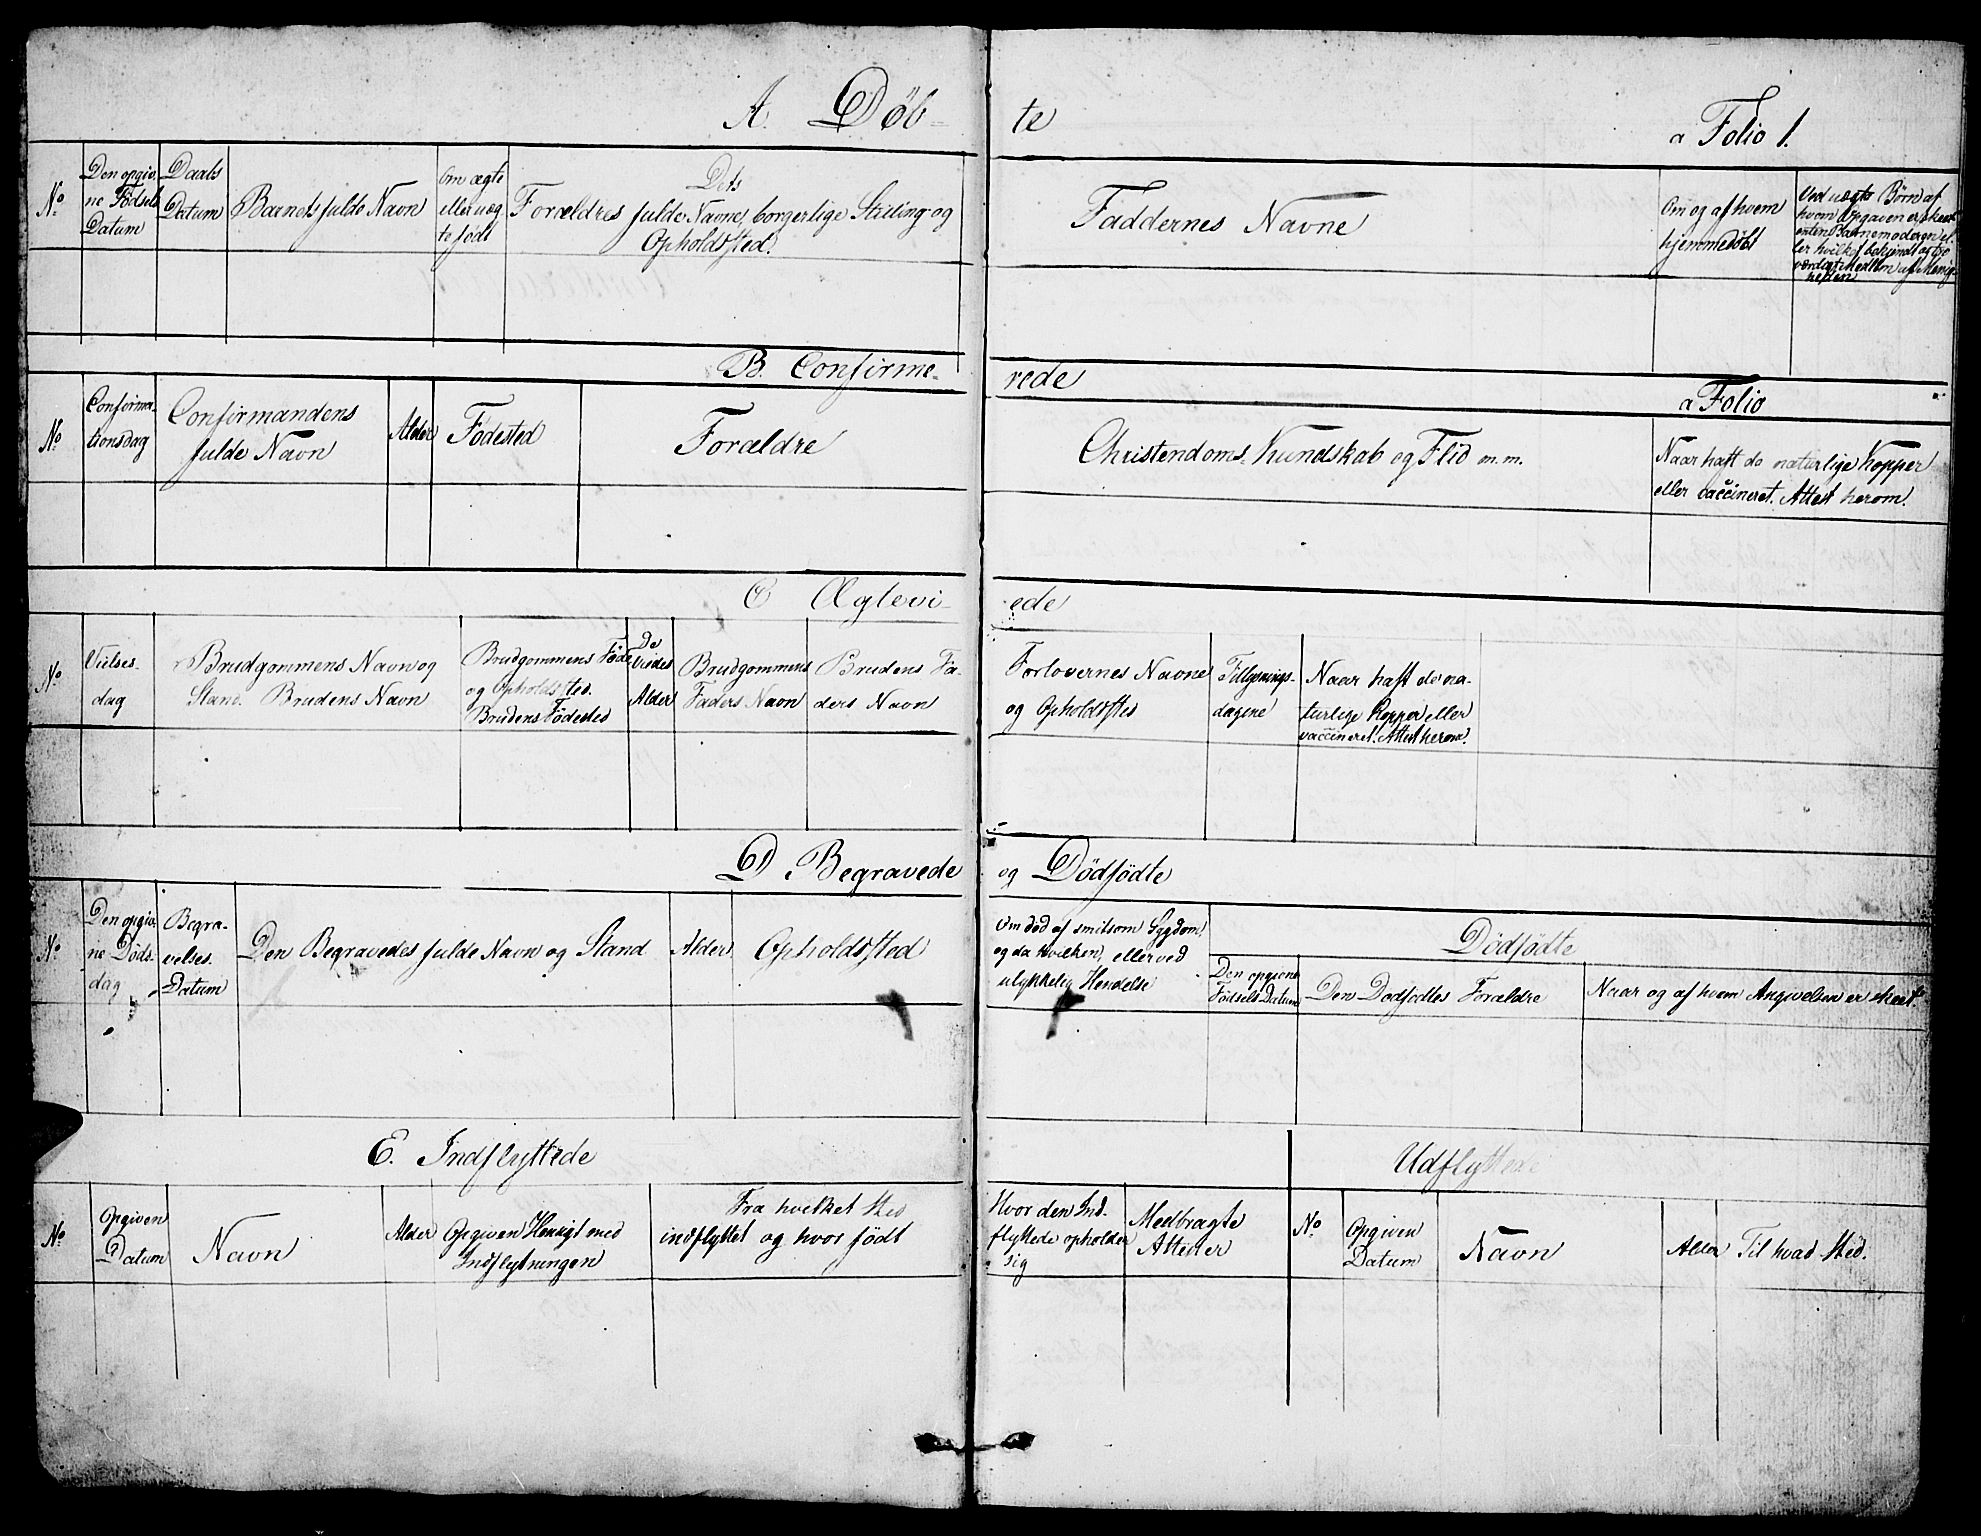 A. Döb-
te
a Folio 1.
No
Den opgiv-
ne Fødsels
Datum
Daabs
Datum
Barnets fulde Navn
Om ægte
eller uæg-
te født
Dets
Forældres fulde Navne, borgerlige Stilling og
Opholdssted.
Faddernes Navne
Om og af hvem
hjemmedøbt
Ved uægte Børn af
hvem Opgaven er skeet
enten Barnemoderen el-
ler hvilket bekjendt og tro
værdigt Medlem af Menig-
heden
B. Confirme-
rede
a Folio
No
Confirma-
tionsdag
Confirmandens
fulde Navn
Alder
Födested
Forældre
Christendoms-Kundskab og Flid m.m.
Naar haft de naturlige Kopper
eller vaccineret. Attest herom.
C Ægtevi-
ede
No
Vielses-
dag
Brudgommens Navn og
Stand. Brudens Navn
Brudgommens Föde
og Opholdssted.
Brudens Födested
De
Viedes
Alder
Brudgommens
Faders Navn
Brudens Fa-
ders Navn
Forlovernes Navne
og Opholdssted
Tillysnings-
dagene
Naar haft de na-
turlige Kopper eller
vaccineret. Attest herom.
D. Begravede
og Dödfödte
No
Den opgiv-
ne Döds-
dag
Begra-
velses-
Datum
Den Begravedes fulde Navn og Stand
Alder
Opholdssted
Om död af smitsom Sygdom,
og da hvilken, eller ved
ulykkelig Hendelse
Dödfödte
Den opgivne
Födsels Datum
Den Dödfödtes Forældre
Naar og af hvem Angivelsen er skeet.
E. Indflyttede
Udflyttede
No
Opgiven
Datum
Navn
Alder
Opgiven Hensigt med
Indflytningen
Fra hvilket Sted
indflyttet og hvor födt
Hvor den Ind-
flyttede opholder
sig
Medbragte
Attester
No
Opgiven
Datum
Navn
Alder
Til hvad Sted.